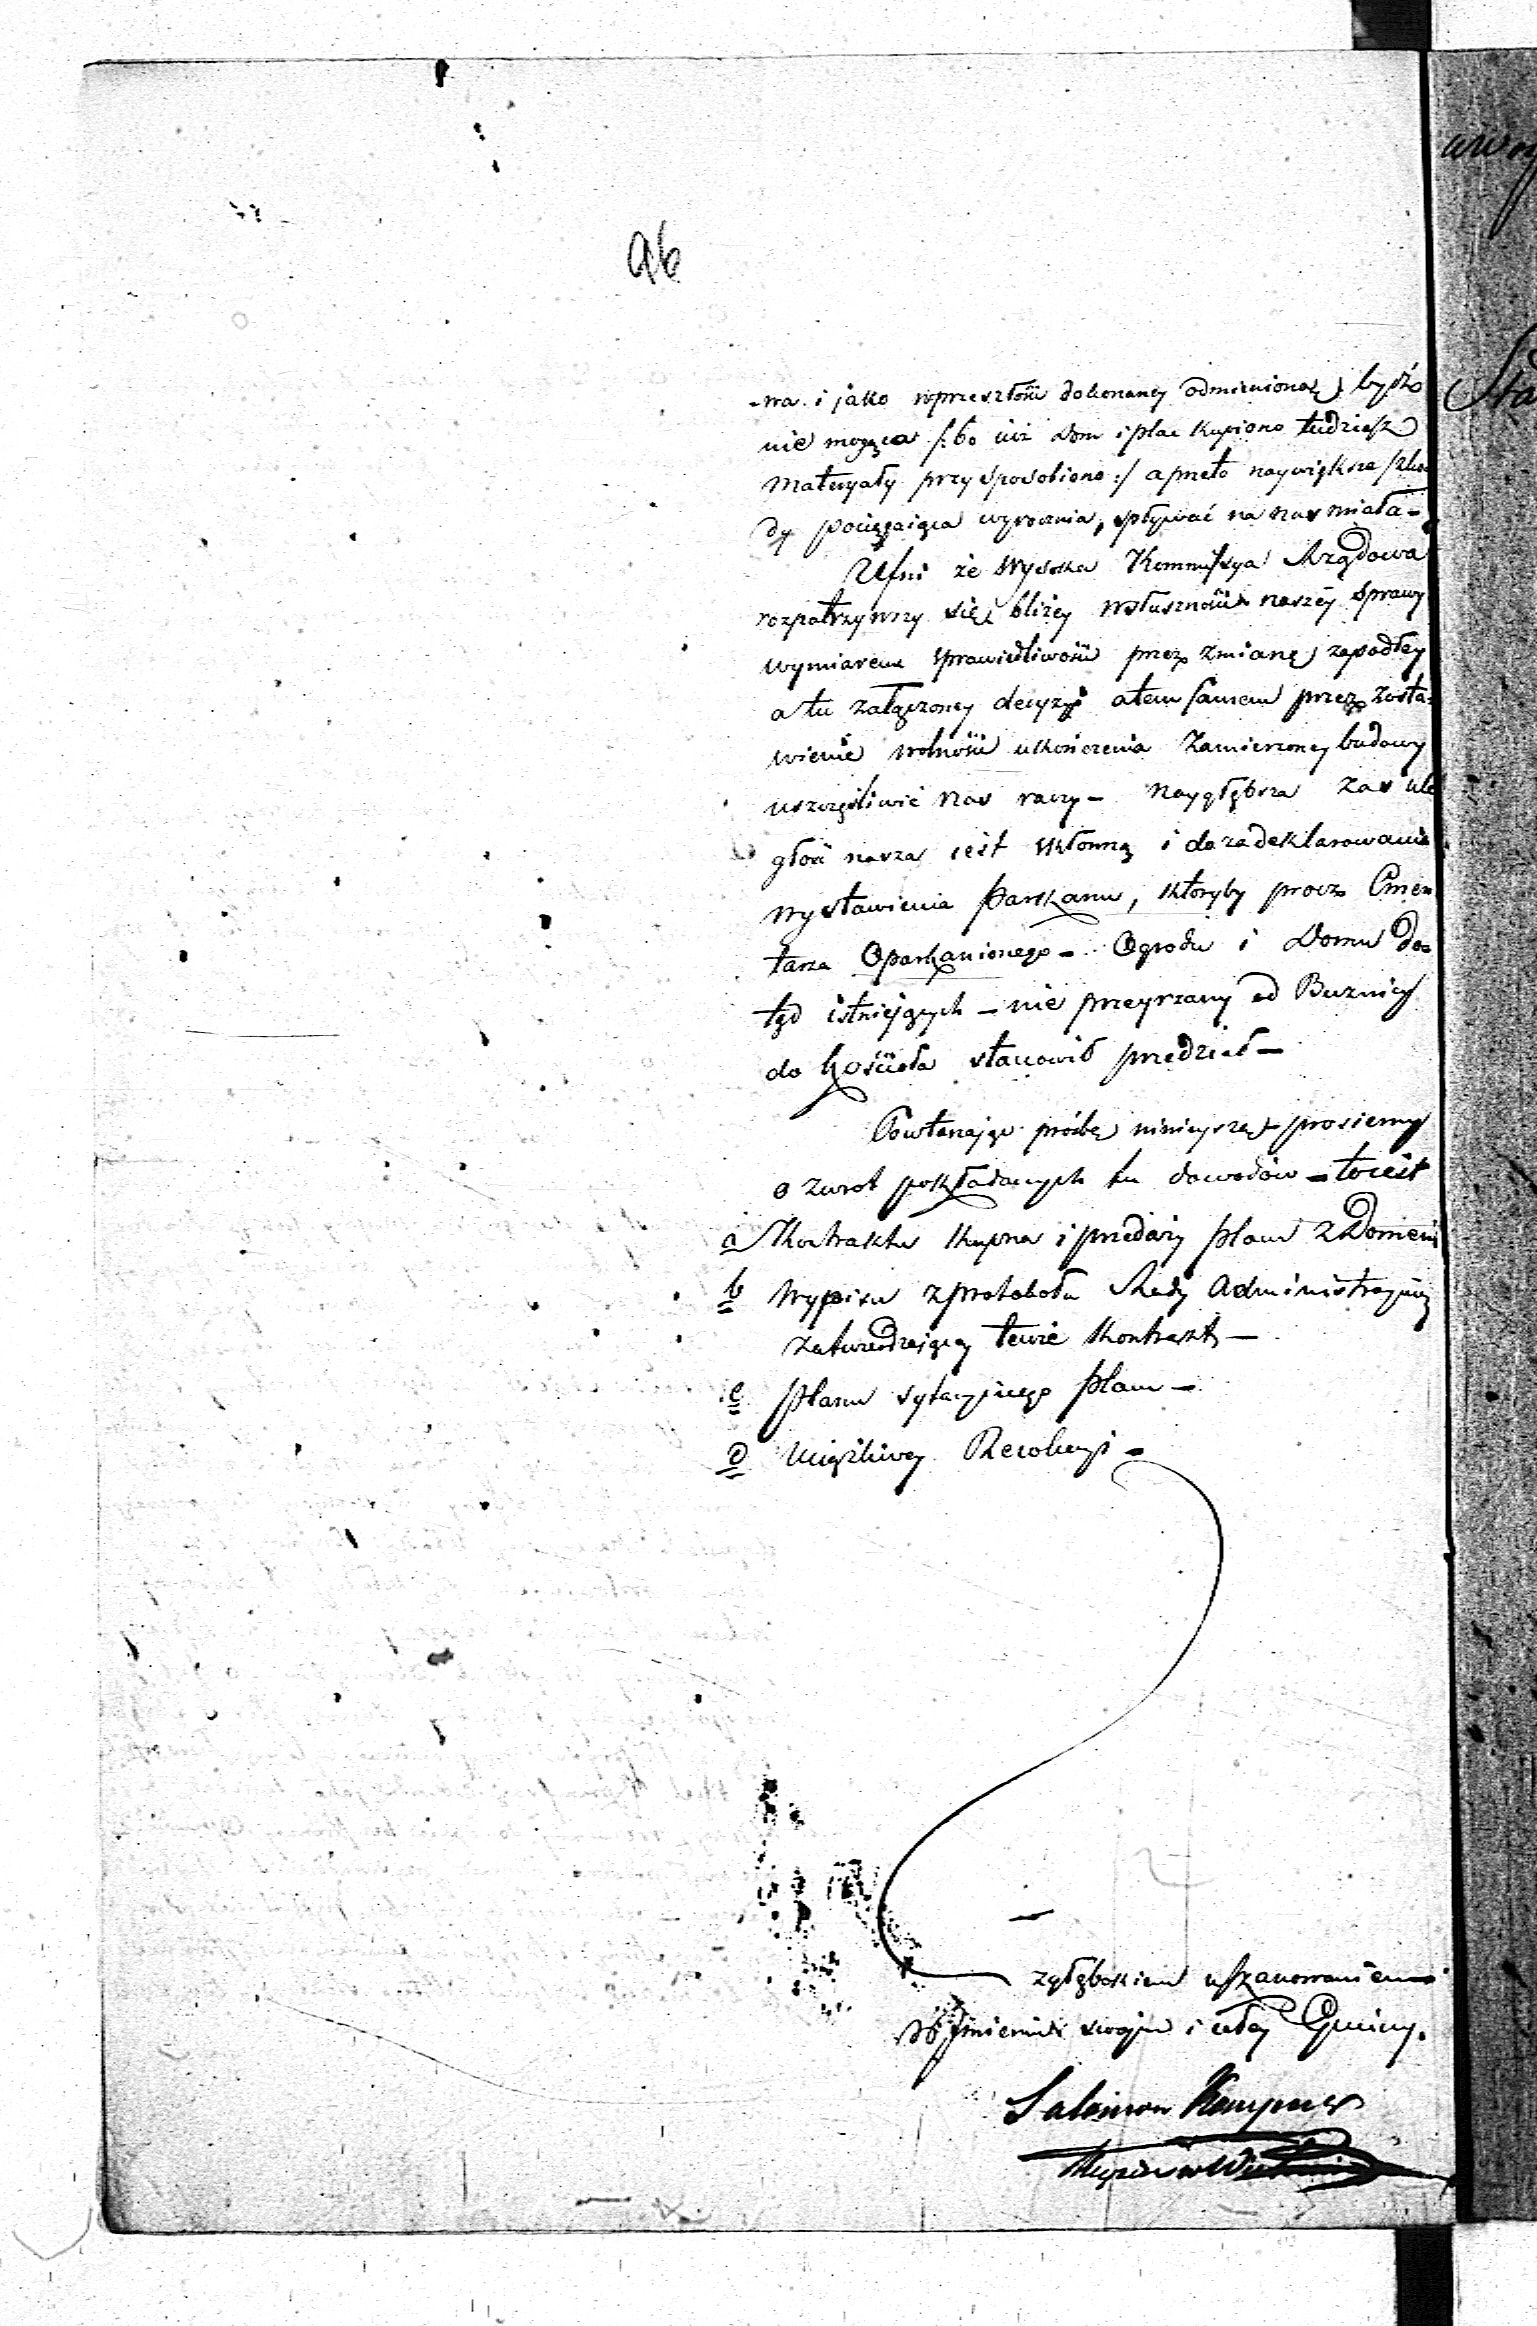 96
-wa i jako w przeszłości dokonaney odmienioną bydź
nie mogąca /: bo iuż dom i plac kupiono tudziesz
materyały przysposobiono :/ a przeto naywiększe szko
dy pociągaiąca wyrocznia, spływać na nas miała –
Ufni że Wysoka Kommissya Rządowa
rozpatrzywszy się bliżey w słuszności naszéy sprawy
wymiarem sprawiedliwości przez zmianę zapadłey
a tu załączoney decyzyi a tem samem przez zosta-
wienie wolności ukończenia zamierzoney budowy
uszczęśliwić nas raczy – naygłębsza zaś ule
głość nasza iest skłonną i do zadeklarowania
wystawienia parkanu, któryby procz Cmen
tarza Oparkanionego – Ogrodu i Domu do-
tąd istniejących – nie przeyrzany od Buznicy
do kościoła stanowił przedział –
Powtarzając prózbę ninieyszą prosiemy
o zwrot pokładanych tu dowodów – to iest
a Kontraktu kupna i przedaży placu z Domem
b Wypisu z protokołu Rady Administracyiney
zatwierdzaiącey tenże kontrakt –
c Planu sytacyinego placu –
d Uciążliwey Rezolucyi –
z głębokiem uszanowaniem
W Imieniu swojm i całey Gminy.
Salomon Kempner